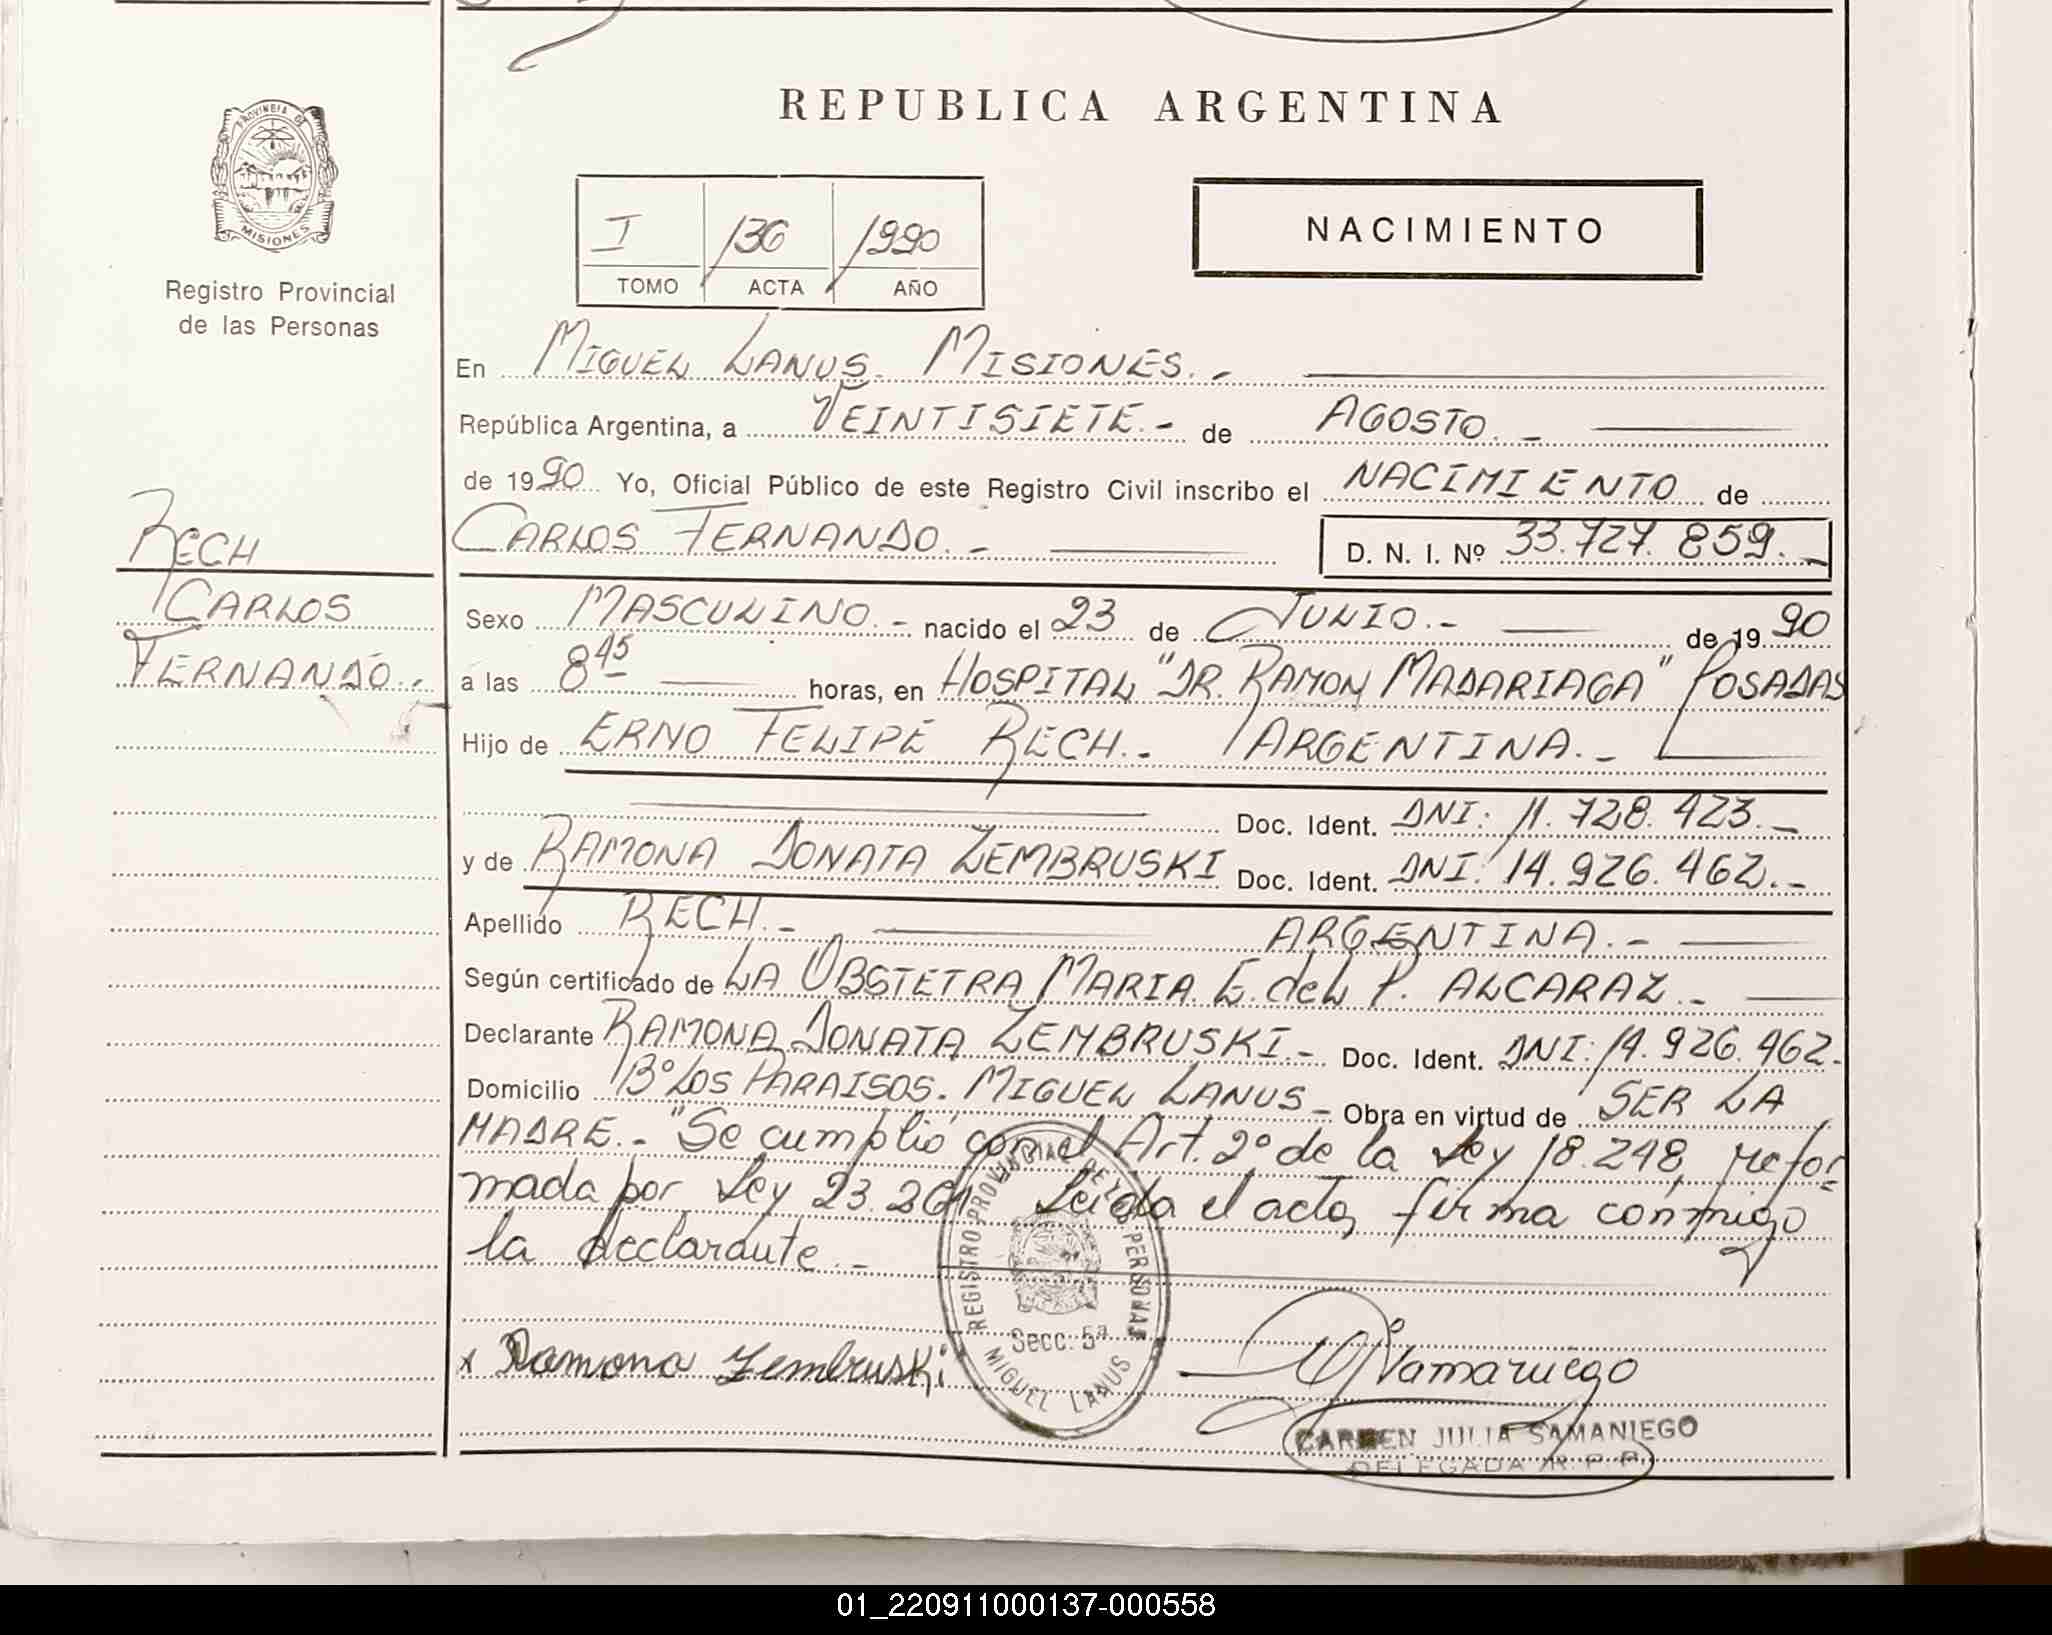 REPUBLICA ARGENTINA
PROVINCIA DE
MISIONES
Registro Provincial
de las Personas
I 136 1990
TOMO ACTA AÑO
NACIMIENTO
En MIGUEL LANUS. MISIONES.-
República Argentina, a VEINTISIETE.- de AGOSTO.-
de 1990 Yo, Oficial Público de este Registro Civil inscribo el NACIMIENTO de
CARLOS FERNANDO.- D. N. I. Nº 33.727.859.-
RECH
CARLOS
FERNANDO.-
Sexo MASCULINO.- nacido el 23 de JULIO.- de 1990
a las 8 45 horas, en HOSPITAL "DR. RAMON MADARIAGA" POSADAS
Hijo de ERNO FELIPE RECH.- ARGENTINA.-
Doc. Ident. DNI: 11.728.423.-
y de RAMONA DONATA ZEMBRUSKI Doc. Ident. DNI: 14.926.462.-
Apellido RECH.- ARGENTINA.-
Según certificado de LA OBSTETRA MARIA E. del P. ALCARAZ.-
Declarante RAMONA DONATA ZEMBRUSKI.- Doc. Ident. DNI: 14.926.462.-
Domicilio Bº LOS PARAISOS. MIGUEL LANUS.- Obra en virtud de SER LA
MADRE.- "Se cumplió con el Art. 2º de la Ley 18.248, refor-
mada por Ley 23.264 Leida el acta, firma conmigo
la declarante.-
REGISTRO PROVINCIAL DE LAS PERSONAS
Secc. 5ª
MIGUEL LANUS
x Ramona Zembruski
CARMEN JULIA SAMANIEGO
DELEGADA R. P. P.
01_220911000137-000558